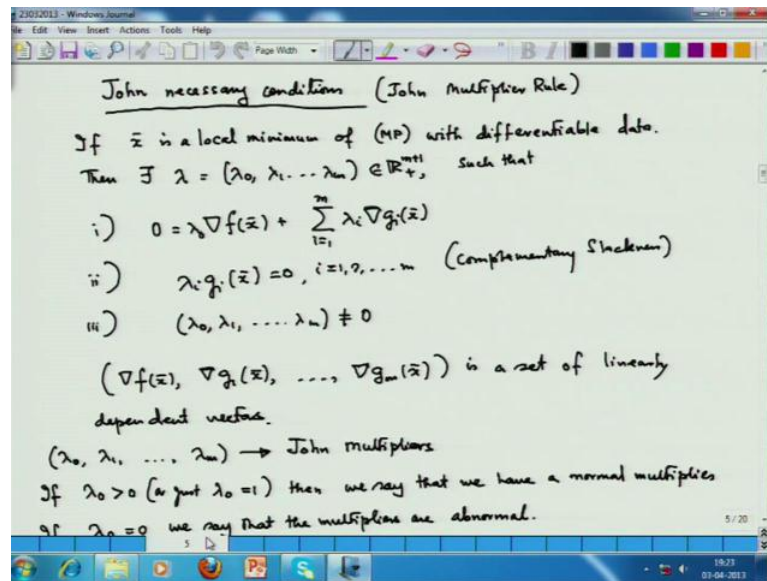 23032013 - Windows Journal
File Edit View Insert Actions Tools Help
Page Width
John necessary condition (John Multiplier Rule)
If x̄ is a local minimum of (MP) with differentiable data.
Then ∃ λ = (λ₀, λ₁ ... λₘ) ∈ ℝ₊ᵐ⁺¹, such that
i) 0 = λ₀∇f(x̄) + ∑ᵢ₌₁ᵐ λᵢ∇gᵢ(x̄)
ii) λᵢgᵢ(x̄) = 0, i = 1, 2, ... m (Complementary Slackness)
iii) (λ₀, λ₁, .... λₘ) ≠ 0
(∇f(x̄), ∇g₁(x̄), ...., ∇gₘ(x̄)) is a set of linearly
dependent vectors.
(λ₀, λ₁, ..., λₘ) → John multipliers
If λ₀ > 0 (or just λ₀ = 1) then we say that we have a normal multiplier
If λ₀ = 0 we say that the multipliers are abnormal.
5 / 20
5
19:23
03-04-2013